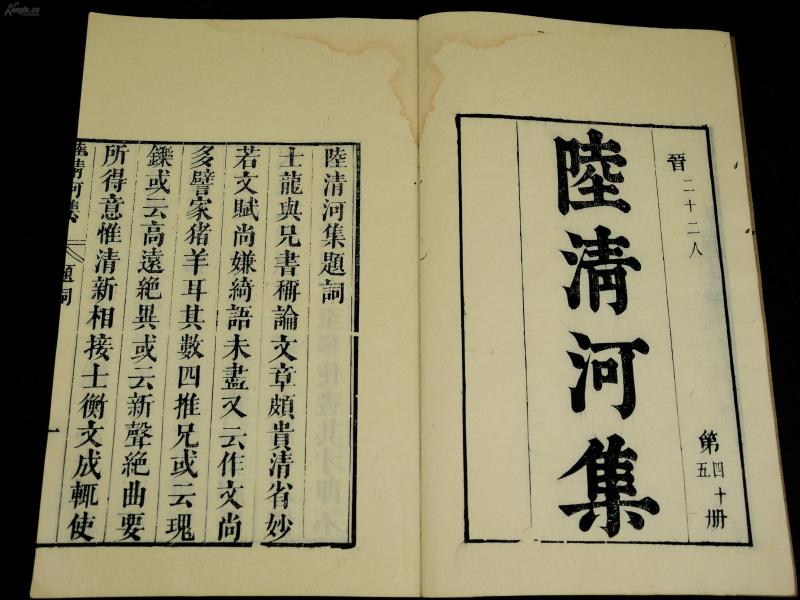 晉 二十二人
第四十五册
陸清河集
陸清河集題詞
士龍與兄書稱論文章頗貴清省妙
若文賦尚嫌綺語未盡又云作文尚
多譬家猪羊耳其數四推兄或云瑰
鑠或云高遠絕異或云新聲絕曲要
所得意惟清新相接士衡文成輒使
陸清河集 題詞 一